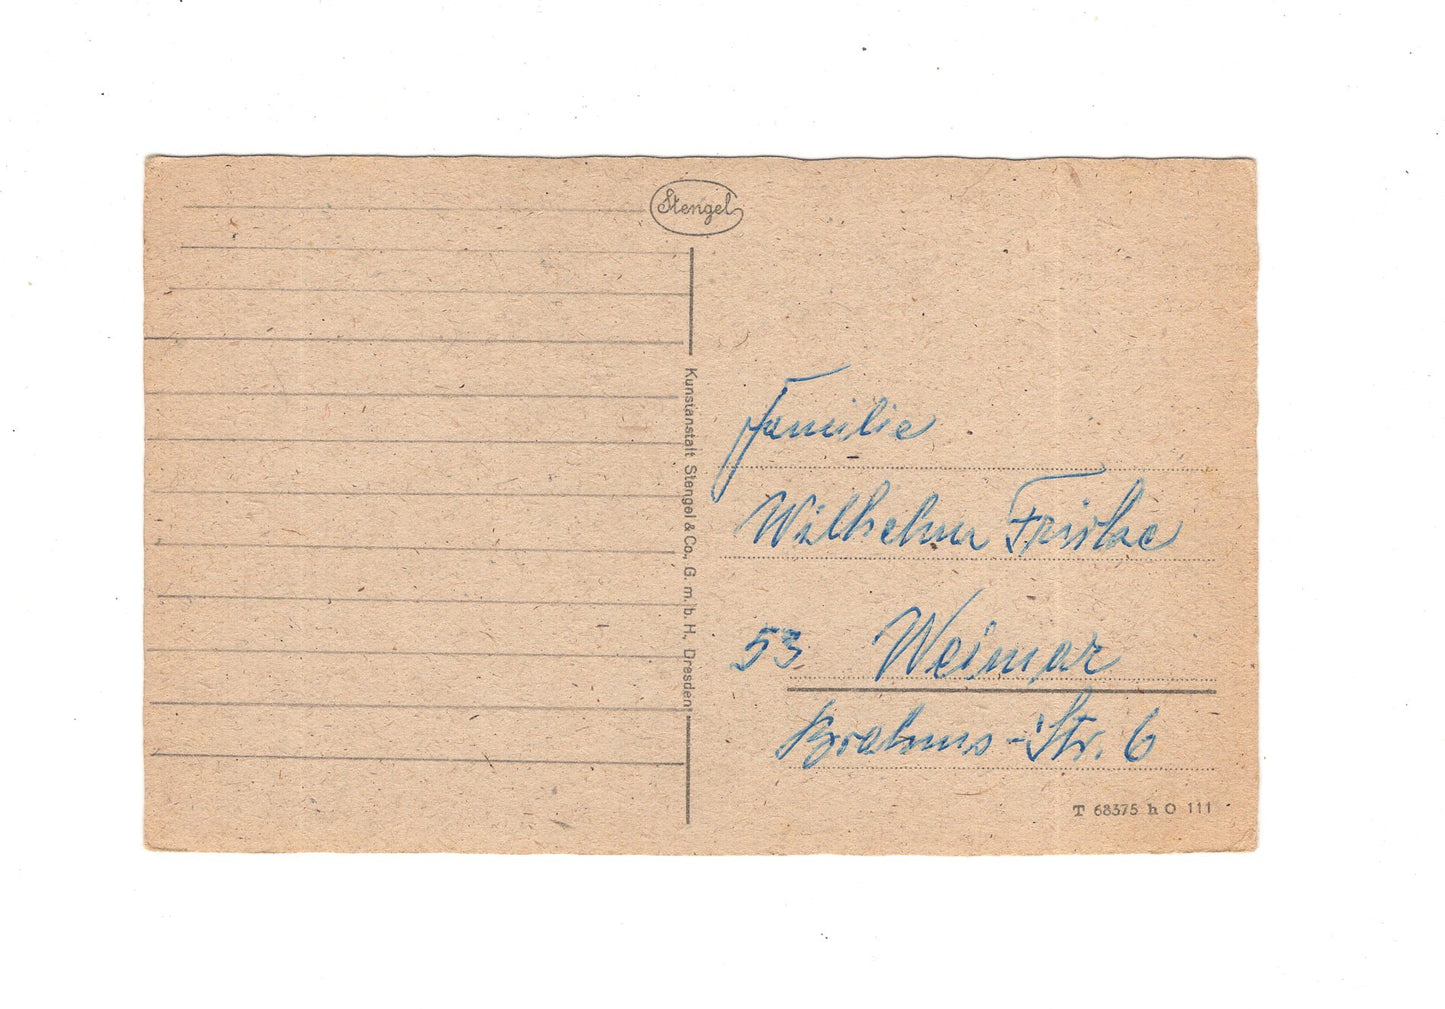 Stengel
Kunstanstalt Stengel & Co., G. m. b. H., Dresden
Familie
Wilhelm Friske
53 Weimar
Brahms-Str. 6
T 68375 h O 111